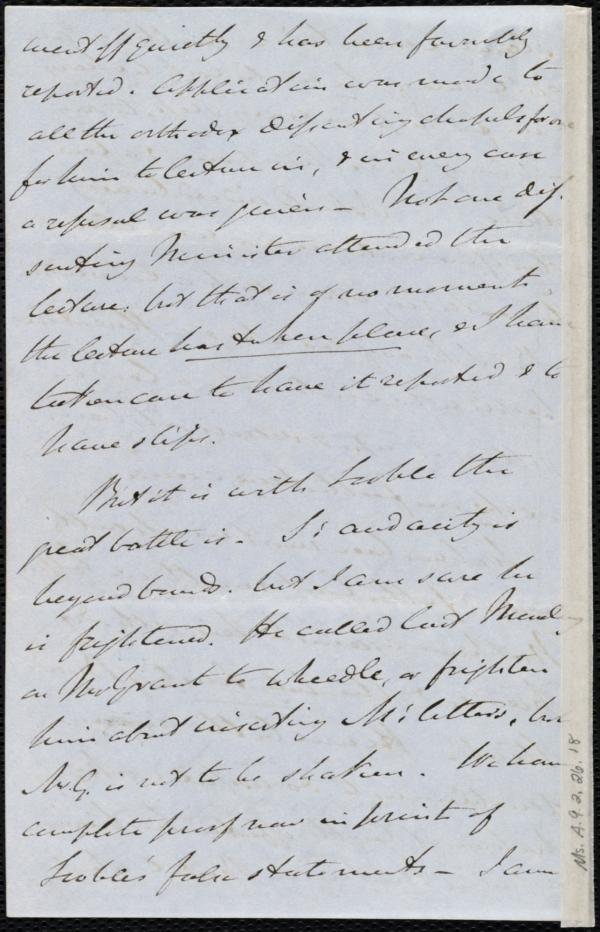 went off quietly & has been favorably
reported. Application was made to
all the orthodox dissenting chapels for one
for him to lecture in, & in every case
a refusal was given – Not one dis-
senting Minister attended the
lecture: but that is of no moment,
the lecture has taken place, & I have
taken care to have it reported & to
have slips.
But it is with Scoble the
great battle is – S's audacity is
beyond bounds. but I am sure he
is frightened. He called last Monday
on Mr Grant to wheedle, or frighten
him about inserting M's letters, but
Mr G. is not to be shaken. We have
complete proof now in print of
Scoble's false statements – I am
Ms. A.9.2.26.18